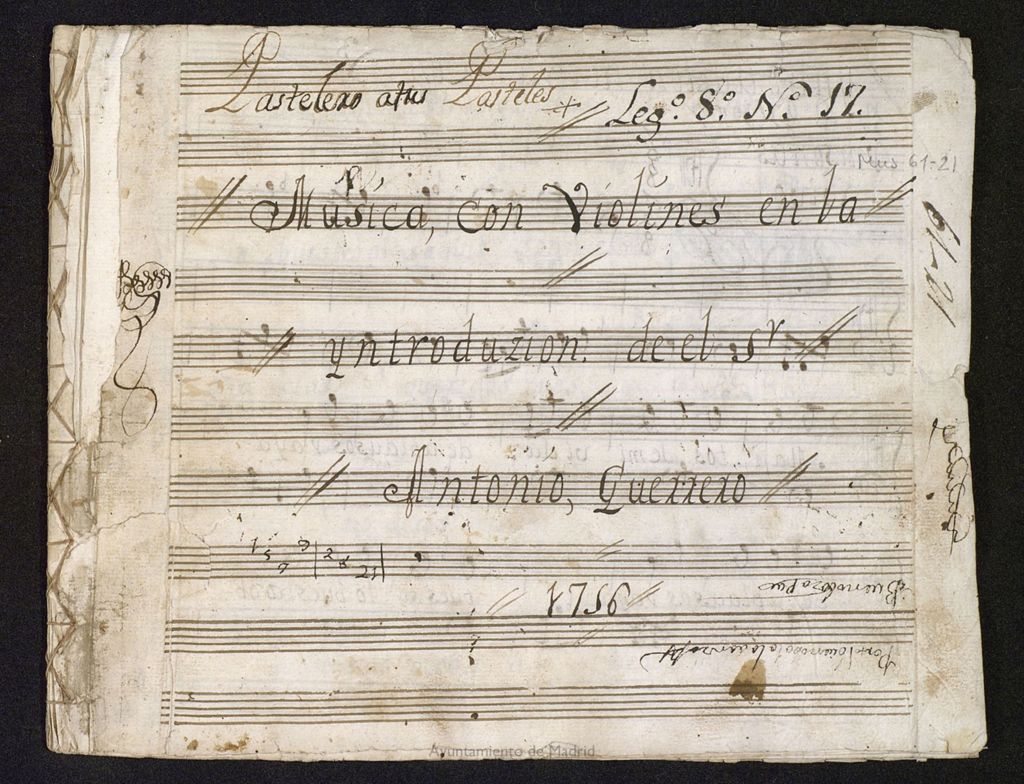 Pastelero atus Pasteles
Leg.º 8.º N.º 17.
Mus 61-21
Musica, con Violines en la
61-21
yntroduzion. de el Sr.
Antonio, Guerrero
1756
Ayuntamiento de Madrid